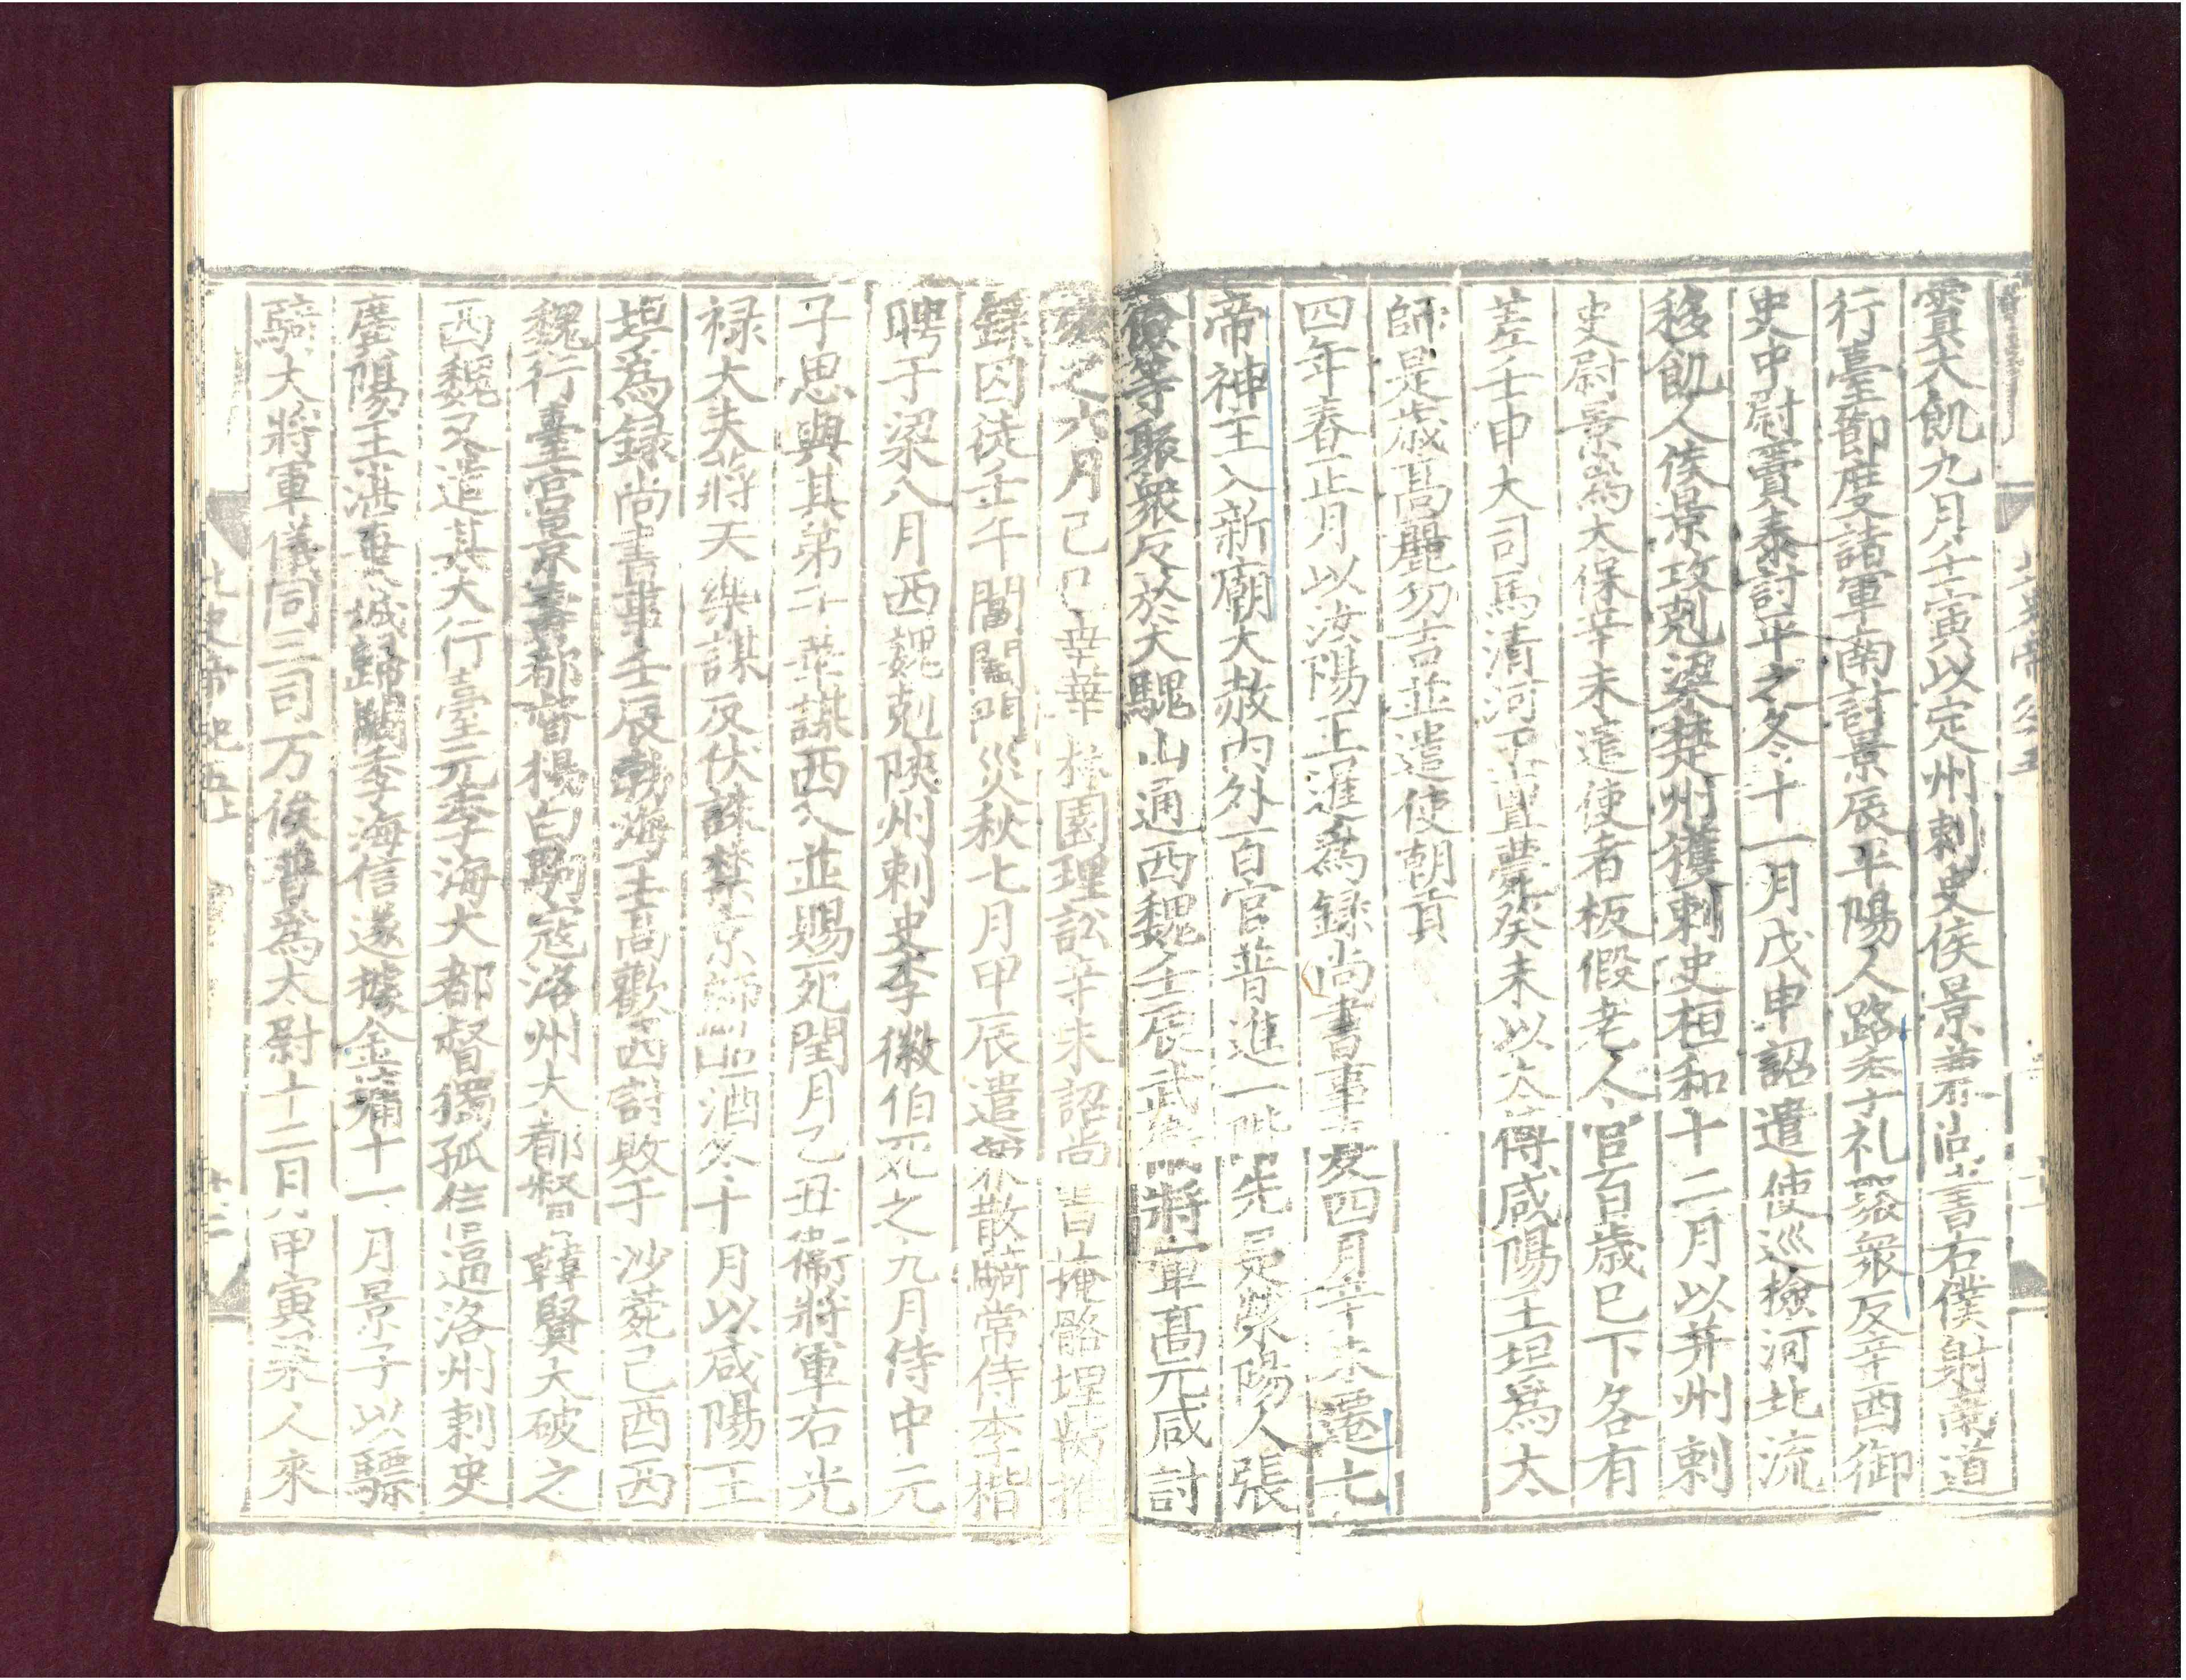 霣大飢九月壬寅以定州刺史侯景兼尚書右僕射南道
行臺節度諸軍南討景辰平陽人路季礼聚衆反辛酉御
史中尉竇泰討平之冬十一月戊申詔遣使巡檢河北流
移飢人侯景攻剋梁楚州獲刺史桓和十二月以并州刺
史尉景為太保辛未遣使者板假老人官百歲已下各有
差壬申大司馬清河王亶薨癸未以太傅咸陽王坦爲太
師是歲高麗勿吉並遣使朝貢
四年春正月以汝陽王暹爲録尚書事夏四月辛未遷七
帝神主入新廟大赦内外百官普進一階先是滎陽人張
儉等聚衆反於大騩山通西魏壬辰武衛將軍髙元咸討
破之六月己巳幸華林園理訟辛未詔尚書掩骼埋胔推
録囚徒壬午閶闔門災秋七月甲辰遣兼散騎常侍李楷
聘于梁八月西魏剋陝州刺史李徽伯死之九月侍中元
子思與其弟子華謀西入並賜死閏月乙丑衛將軍右光
禄大夫蔣天樂謀反伏誅禁京師酤酒冬十月以咸陽王
坦爲録尚書事壬辰勃海王高歡西討敗于沙苑己酉西
魏行臺宫景壽都督楊白駒寇洛州大都督韓賢大破之
西魏又遣其大行臺元季海大都督獨孤信逼洛州刺史
廣陽王湛棄城歸闕季海信遂據金墉十一月景子以驃
騎大將軍儀同三司万俟普爲太尉十二月甲寅梁人來
北史帝紀五上
十二